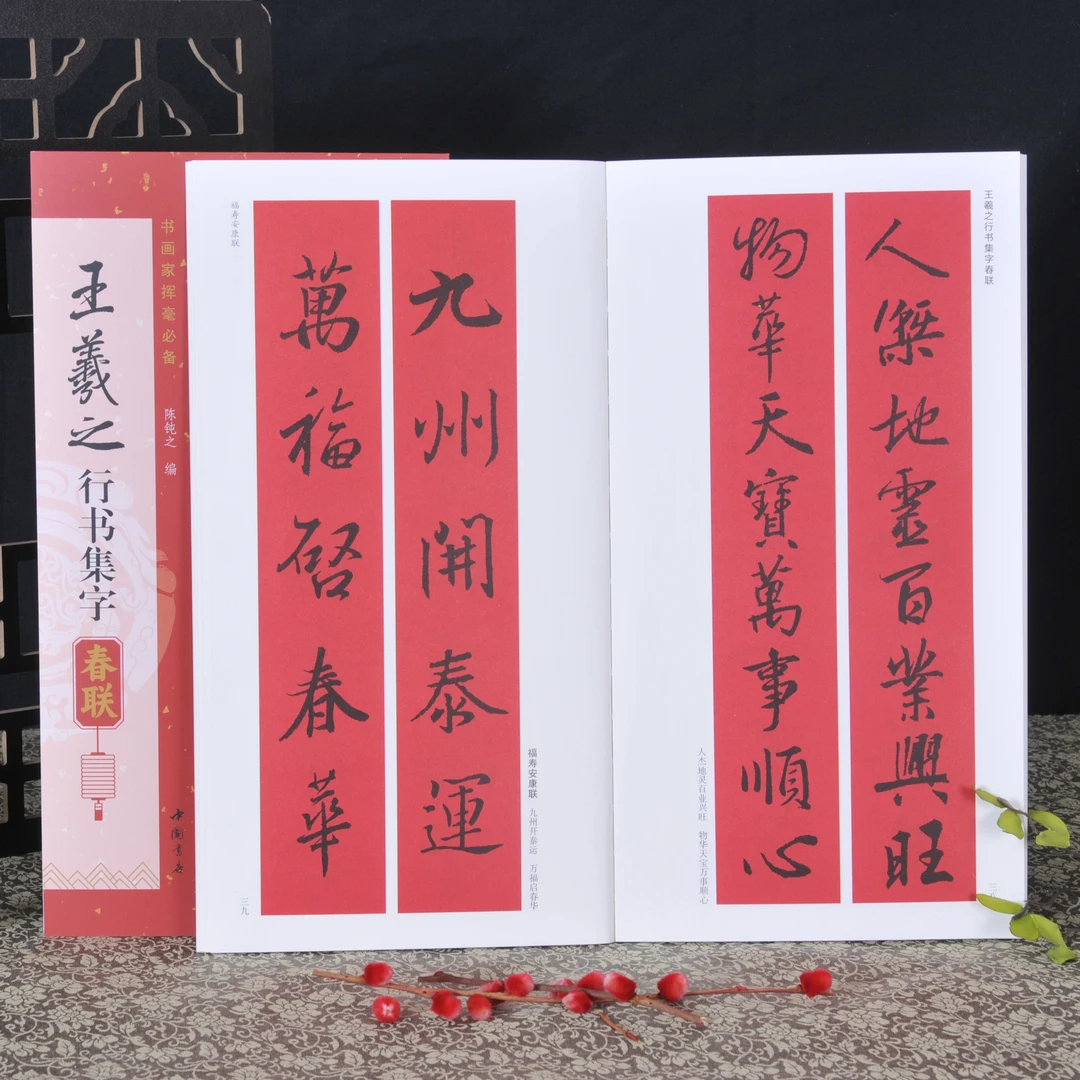 王羲之
行书集字
春联
书画家挥毫必备
陈钝之 编
中国书店
王羲之行书集字春联
人傑地靈百業興旺
物華天寶萬事順心
人杰地灵百业兴旺 物华天宝万事顺心
福寿安康联 九州开泰运 万福启春华
九州開泰運
萬福啓春華
福寿安康联
三九